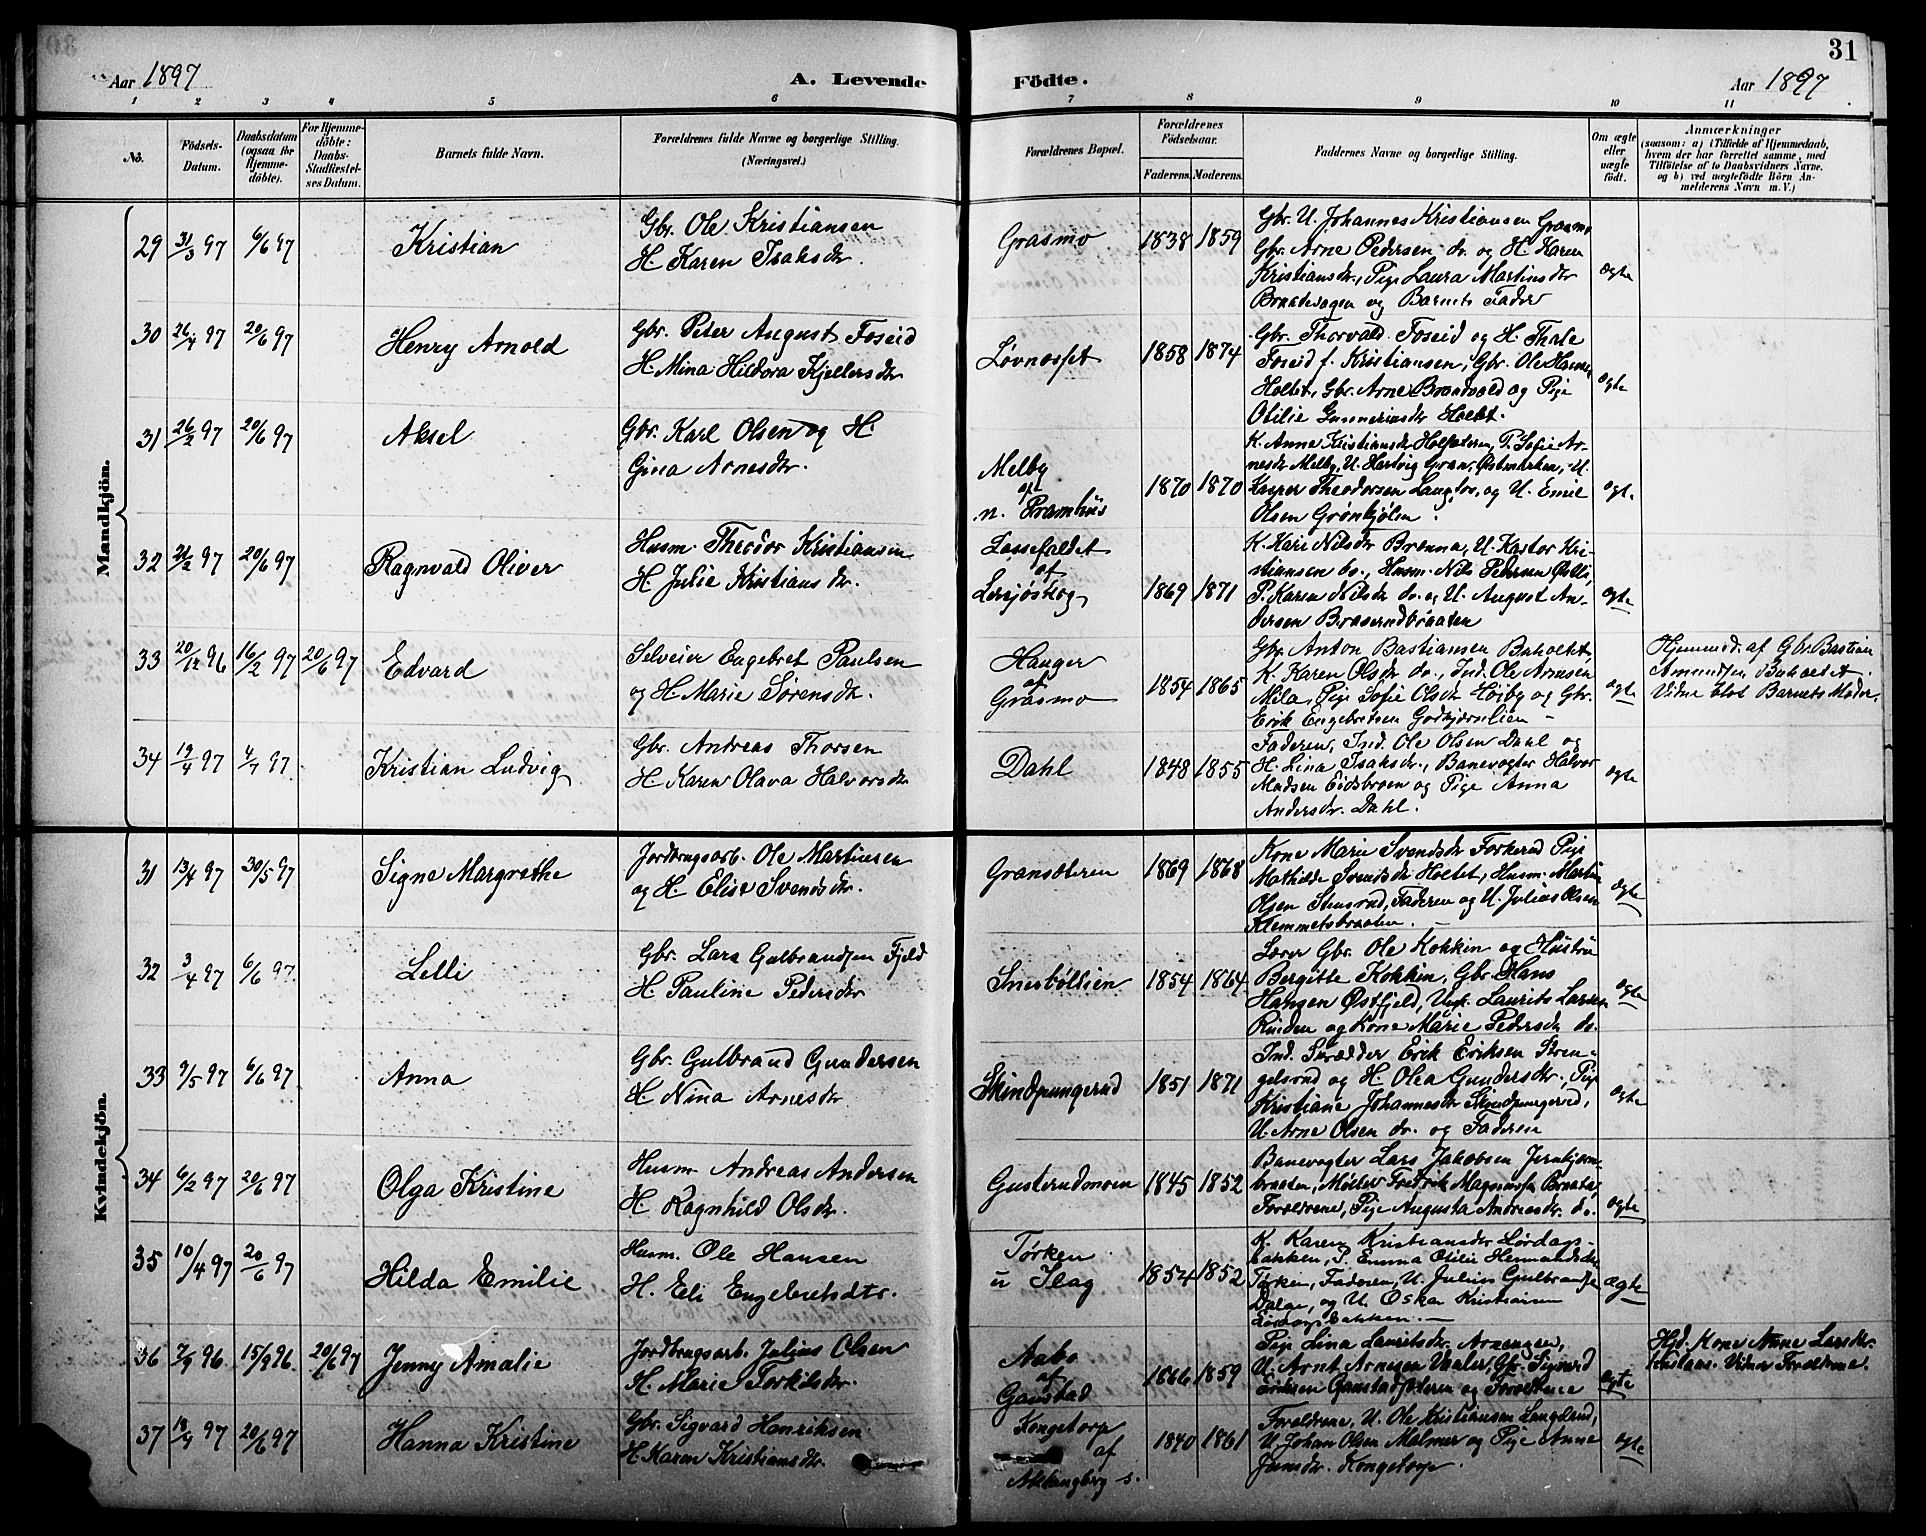 31
Aar 1897
A. Levende Födte.
Aar 1897
1 2 3 4 5 6 7 8 9 10 11
No.
Födsels-
Datum.
Daabsdatum
(ogsaa for
Hjemme-
döbte).
For Hjemme-
döbte:
Daabs-
Stadfæstel-
ses Datum.
Barnets fulde Navn.
Forældrenes fulde Navne og borgerlige Stilling.
(Næringsvei.)
Forældrenes Bopæl.
Forældrenes
Födselsaar.
Faderens. Moderens.
Faddernes Navne og borgerlige Stilling.
Om ægte
eller
uægte
födt.
Anmærkninger
(saasom: a) i Tilfælde af Hjemmedaab,
hvem der har forrettet samme, med
Tilföielse af to Daabsvidners Navne.
og b) ved uægtefödte Börn An-
melderens Navn m. V.)
Mandkjön.
29 31/3 97 6/6 97 Kristian
Gbr. Ole Kristiansen
H. Karen Isaksdr.
Grasmo 1838 1859
Gbr. U. Johannes Kristiansen Grasmo
Gbr. Arne Pedersen do. og H. Karen
Kristiansdr., Pige Laura Martinsdr
Braatevagen og Barnets Fader
ægte
30 26/4 97 20/6 97 Henry Arnold
Gbr. Peter August Foseid
H. Mina Hildora Kjellersdr
Løvnæsset 1858 1874
Gbr. Thorvald Foseid og H. Thale
Foseid f. Kristiansen, Gbr. Ole Hansen
Holtet, Gbr. Arne Brandvold og Pige
Otilie Gunneriusdr Holtet.
ægte
31 26/2 97 20/6 97 Aksel
Gbr. Karl Olsen og H.
Gina Arnesdr.
Melby
af
n. Pramhus
1870 1870
K. Anne Kristiansdr Holsæteren, P. Sofie Ar-
nesdr Melby, U. Hartvig Gran, Østenheken, U.
Kasper Theodorsen Langtoo, og U. Emil
Olsen Grønhjølen.
ægt.
32 21/2 97 20/6 97 Ragnvald Oliver
Husm. Theodor Kristiansen
H. Julie Kristiansdr.
Lassefaldet
af
Lersjøskog
1869 1871
K. Kari Nilsdr Brenna, U. Kastor Kri-
stiansen do., Husm. Nils Pedersen
P. Karen Nilsdr do. og U. August An-
dersen
ægte
33 20/12 96 16/2 97 20/6 97 Edvard
Selveier Engebret Paulsen
og H. Marie Sørensdr.
Hauger
af
Grasmo
1854 1865
Gbr. Anton Bastiansen Buholtet,
K. Karen Olsdr do., Ind. Ole Arnesen
Mila, Pige Sofie Olsdr Høiby og Gbr.
Erik Engebretsen Godkjærnlien
ægte
Hjemmed. af Gbr. Bastian
Amundsen Buholtet
Vidne blot Barnets Moder.
34 19/4 97 4/7 97 Kristian Ludvig
Gbr. Andreas Thorsen
H. Karen Olava Halvorsdr
Dahl 1848 1855
Faderen, Ind. Ole Olsen Dahl og
H. Lina Isaksdr., Banevogter Halvor
Madsen Eidsbroen og Pige Anna
Andersdr. Dahl.
ægte
Kvindekjön.
31 13/4 97 30/5 97 Signe Margrethe
Jordbrugsarb. Ole Martinsen
og H. Elise Svendsdr.
Gransæteren 1869 1868
Kone Marie Svendsdr Forkerud Pige
Mathilde Svendsdr Holtet, Husm. Martin
Olsen Stensrud, Faderen og U. Julius Olsen
Klemmetsbraaten
ægte
32 3/4 97 6/6 97 Lelli
Gbr. Lars Gulbrandsen Fjeld
H. Pauline Pedersdr
Snesbøllien 1854 1864
Lærer Gbr. Ole Kokkin og Hustru
Bergitte Kokkin, Gbr. Hans
Hansen Østfjeld, Ungk. Laurits Larsen
Ruuden og Kone Marie Pedersdr do.
ægte
33 9/5 97 6/6 97 Anna
Gbr. Gulbrand Gundersen
H. Nina Arnesdr
Skindpungerud 1851 1871
Ind. Skrædder Erik Eriksen Stren-
gelsrud og H. Olea Gundersdr., Pige
Kristiane Johannesdr Skindpungerud,
U. Arne Olsen do. og Faderen
ægte
34 6/2 97 20/6 97 Olga Kristine
Husm. Andreas Andersen
H. Ragnhild Olsdr.
Gusterudmoen 1845 1852
Banevogter Lars Jakobsen Jernkjern-
braaten, Møller Fredrik Magnussen Braata,
Forældrene, Pige Augusta Andreasdr. do.
ægte
35 10/4 97 20/6 97 Hilda Emilie
Husm. Ole Hansen
H. Eli Engebretsdtr.
Tørken
u Ilag
1854 1852
K. Karen Kristiansdr Lørdags-
bakken, P. Emma Otilie Hermandsdr
Tørken, Faderen, U. Julius Gulbrandsen
Dalae, og U. Oskar Kristiansen
Lørdagsbakken.
ægte
36 7/9 96 15/9 96 20/6 97 Jenny Amalie
Jordbrugsarb. Julius Olsen
H. Marie Torkilsdr.
Aabo
af
Gaustad
1866 1859
Pige Lina Lauritsdr. Arnengen,
U. Arnt Arnesen Vaaler, Gbr. Sigvard
Eriksen Gaustadsæteren og Forældrene
ægte
Hjd. Kone Anne Larsdr.
Vidner Forældrene.
37 18/4 97 20/6 97 Hanna Kristine
Gbr. Sigvard Henriksen
H. Karen Kristiansdr.
Kongetorp
af
1840 1861
Forældrene, U. Ole Kristiansen Langelund,
U. Johan Olsen Malmer og Pige Anne
Jensdr. Kongetorp.
ægte